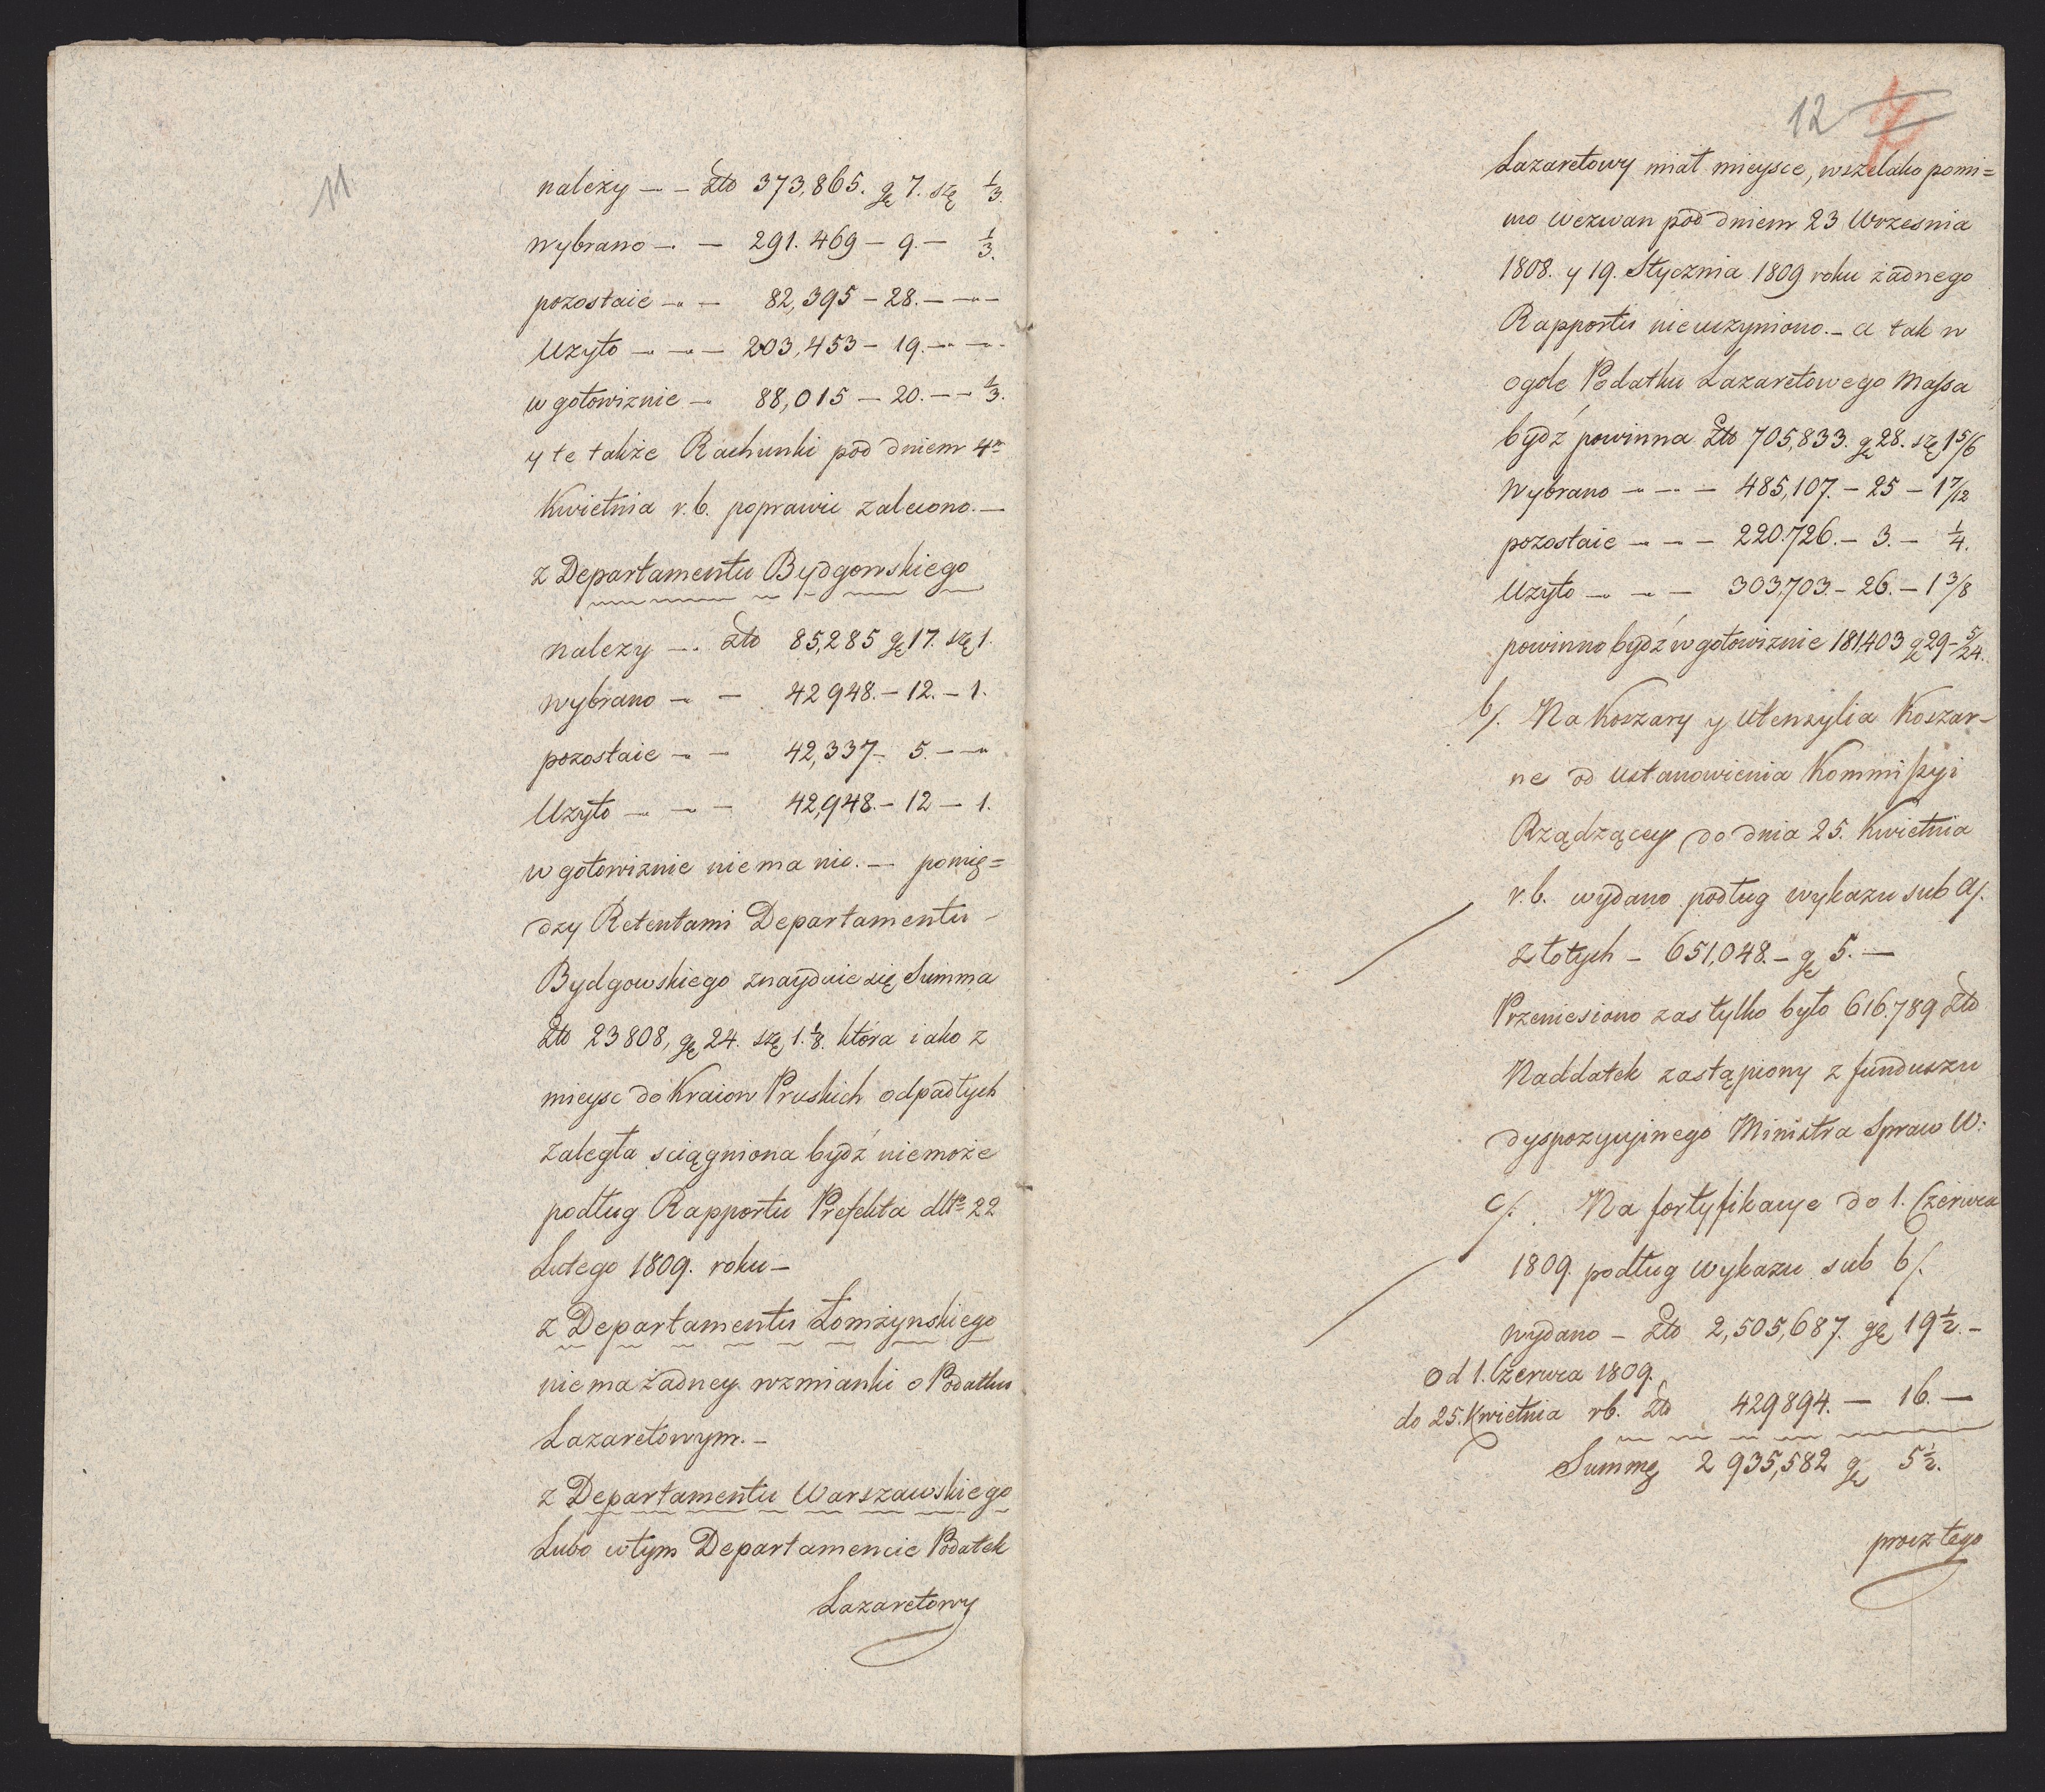 11.
należy — — Złto 373,865. gr 7. szę 1/3.
wybrano — — 291.469 — 9. — 1/3.
pozostaie — — 82,395 — 28. — — —
Użyto — — — 203,453 — 19. — — —
w gotowiznie — 88,015 — 20. — — 1/3.
y te także Rachunki pod dniem 4n
Kwietnia r.b. poprawić zalecono. —
z Departamentu Bydgowskiego
nalezy — .. złto 85,285 gr 17. szę 1.
wybrano — — 42948. — 12. — 1.
pozostaie — — 42,337 — 5. — —
Użyto — — — 42,948. — 12 — 1.
w gotowiznie niema nic. — pomię=
dzy Retentami Departamentu —
Bydgowskiego znayduie się Summa
Złto 23808, gr 24. szę 1. 1/8. która iako z
mieysc do Kraiow Pruskich odpadłych
zaległa sciągniona bydź niemoże
podług Rapportu Prefekta dtto 22
Lutego 1809. roku —
z Departamentu Łomżynskiego
niema żadney wzmianki o Podatku
Lazaretowym. —
z Departamentu Warszawskiego
Lubo w tym Departamencie Podatek
Lazaretowy
12 7
Lazaretowy miał mieysce, wszelako pomi=
mo wezwan pod dniem 23 Wrzesnia
1808. y 19. Stycznia 1809 roku żadnego
Rapportu nieuczyniono. — a tak w
ogole Podatku Lazaretowego Massa
bydź powinna Złto 705,833. gr 28. szę 1 5/6
Wybrano — — — 485,107. — 25 — 1 7/12
pozostaie — — — 220.726. — 3. — 1/4.
Użyto — — — 303,703. — 26. — 1 3/8
powinno bydź w gotowiznie 181403 gr 29 — 5/24.
b/. Na Koszary y Utensylia Koszar-
ne od ustanowienia Kommissyi
Rządzącey do dnia 25. Kwietnia
r.b. wydano podług wykazu sub a/.
złotych — 651,048. — gr 5. —
Przeniesiono zas tylko było 616.789 złto
Naddatek zastąpiony z funduszu
dyspozycyinego Ministra Spraw W.
c/. Na fortyfikacye do 1. Czerwca
1809. podług wykazu sub b/.
wydano — Złto 2,505,687. gr 19 1/2. —
Od 1. Czerwca 1809.
do 25. Kwietnia rb. Złto 429894. — 16. —
Summę 2 935,582 gr 5 1/2.
procz tego